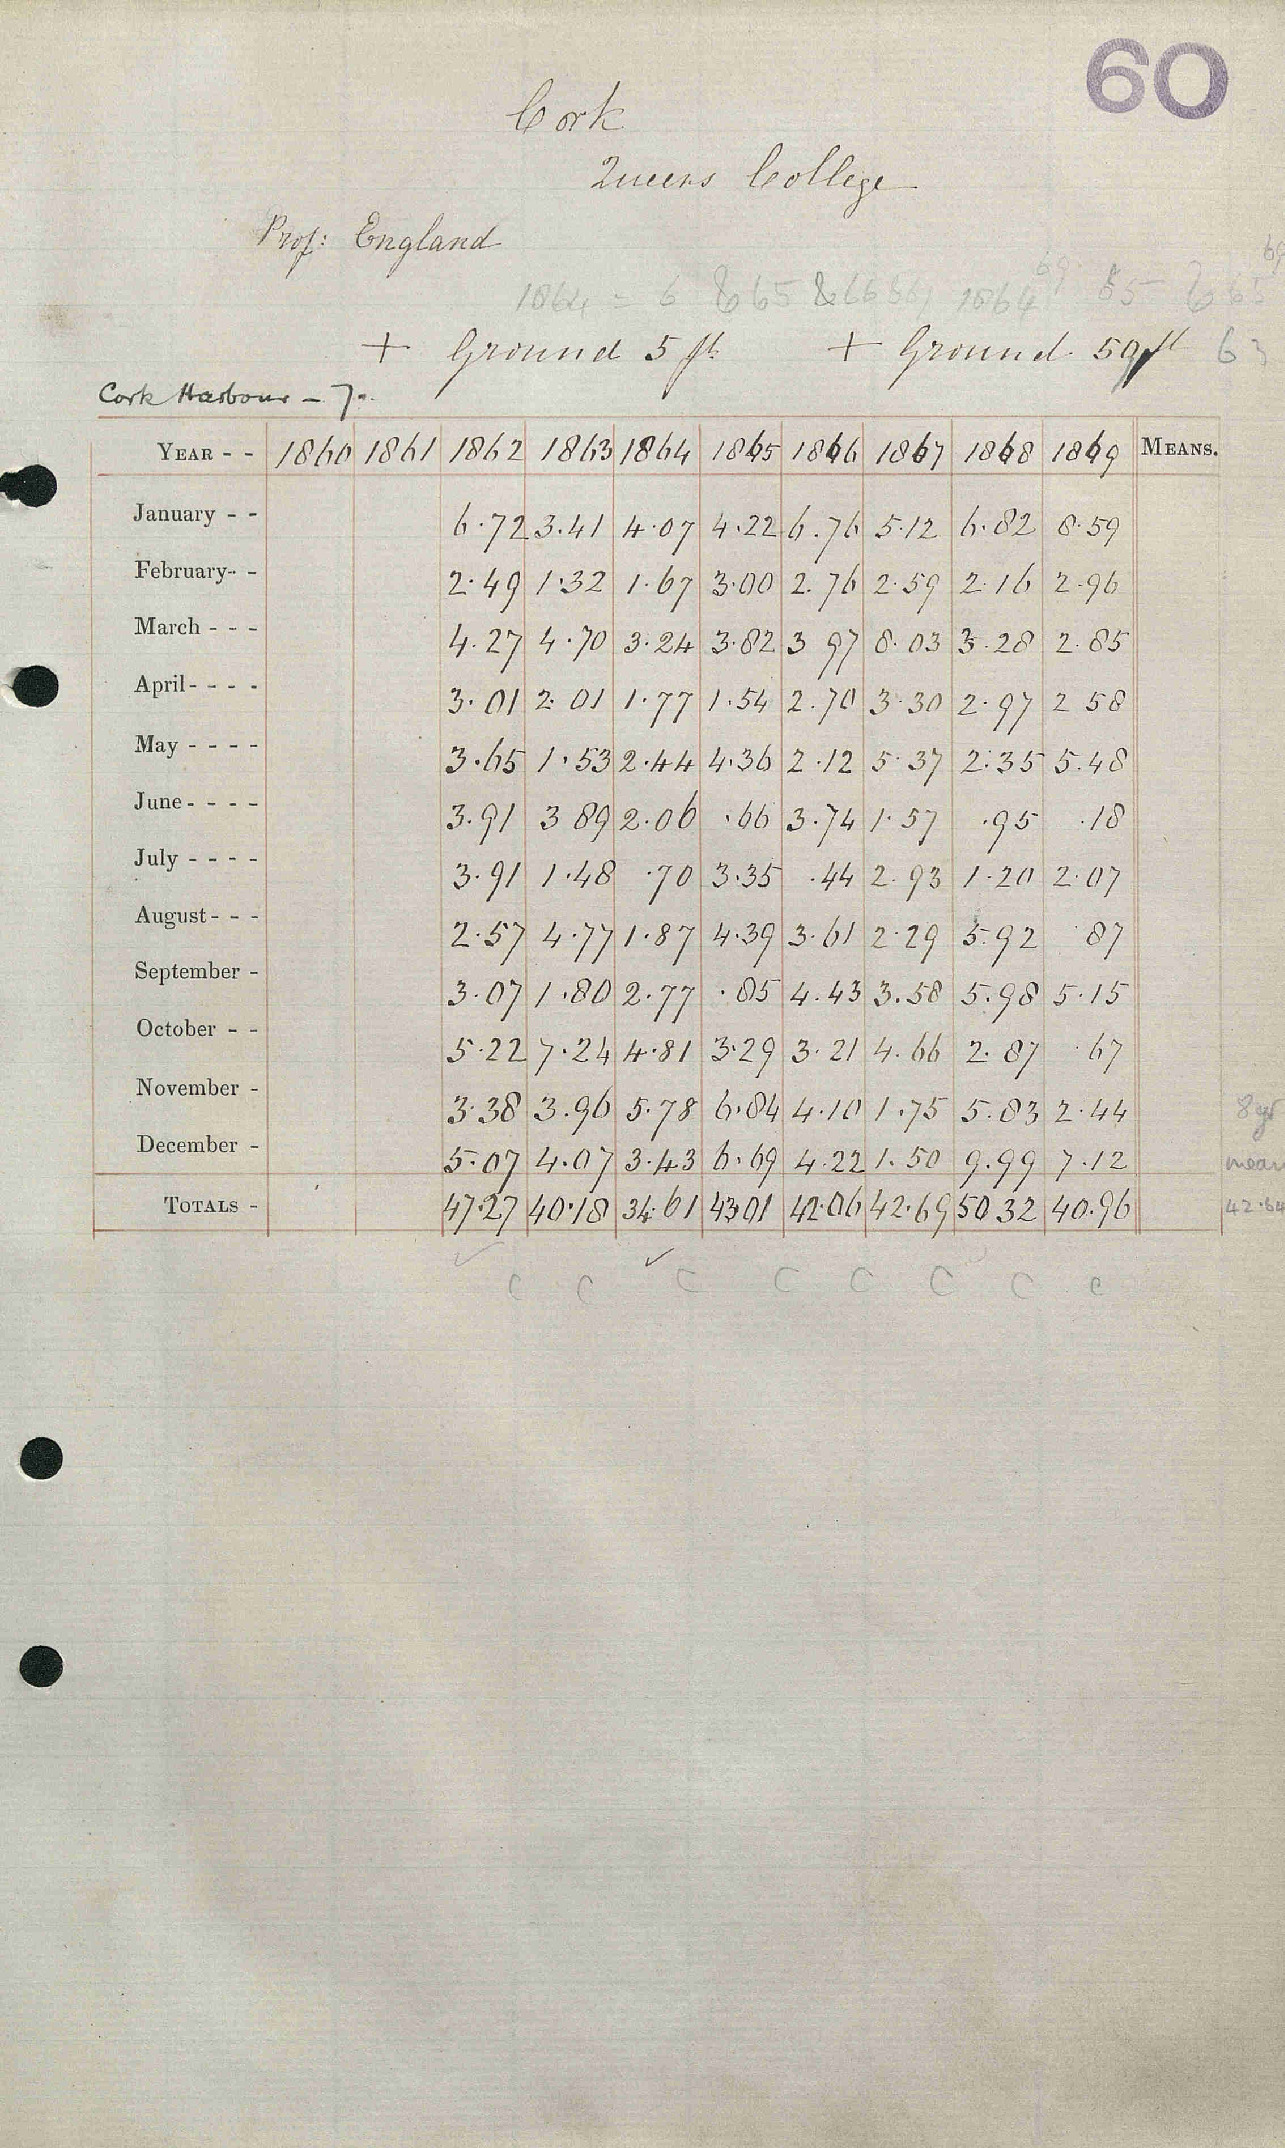 60
Cork
Queens College
Prof: England
+ Ground 5 ft + Ground 59 ft 63
Cork Harbour - 7.
YEAR - - 1860 1861 1862 1863 1864 1865 1866 1867 1868 1869 MEANS.
January - - 6.72 3.41 4.07 4.22 6.76 5.12 6.82 8.59
February - - 2.49 1.32 1.67 3.00 2.76 2.59 2.16 2.96
March - - - 4.27 4.70 3.24 3.82 3 97 8.03 3.28 2.85
April - - - - 3.01 2.01 1.77 1.54 2.70 3.30 2.97 2 58
May - - - - 3.65 1.53 2.44 4.36 2.12 5.37 2.35 5.48
June - - - - 3.91 3 89 2.06 .66 3.74 1.57 .95 .18
July - - - - 3.91 1.48 .70 3.35 .44 2.93 1.20 2.07
August - - - 2.57 4.77 1.87 4.39 3.61 2.29 5.92 87
September - 3.07 1.80 2.77 .85 4.43 3.58 5.98 5.15
October - - 5.22 7.24 4.81 3.29 3.21 4.66 2.87 .67
November - 3.38 3.96 5.78 6.84 4.10 1.75 5.83 2.44 8 yr
December - 5.07 4.07 3.43 6.69 4.22 1.50 9.99 7.12 mean
TOTALS - 47.27 40.18 34.61 43.01 42.06 42.69 50 32 40.96 42.64
C C C C C C C C